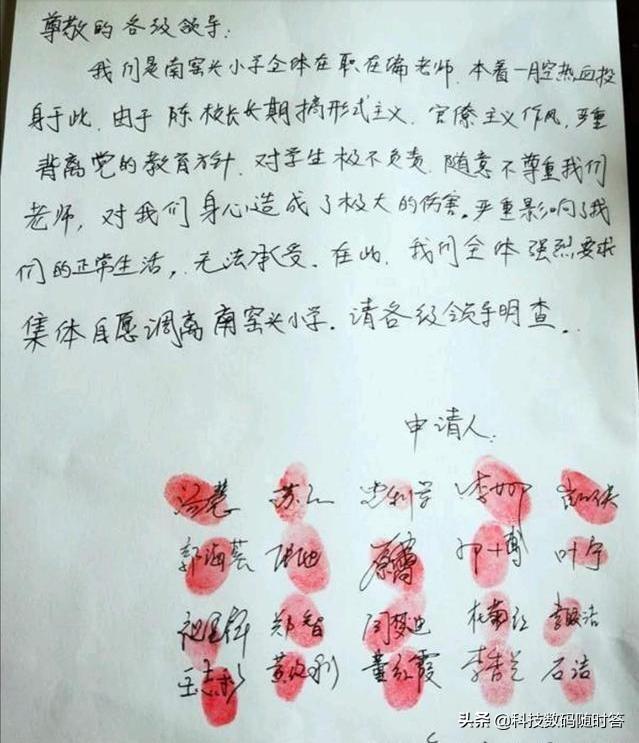 尊敬的各级领导:
我们是南窑头小学全体在职在编老师.本着一腔热血投
身于此.由于陈校长长期搞形式主义.官僚主义作风,严重
背离党的教育方针.对学生极不负责.随意不尊重我们
老师,对我们身心造成了极大的伤害,严重影响了我
们的正常生活,无法承受.在此.我们全体强烈要求
集体自愿调离南窑头小学.请各级领导明查.
申请人:
苏 李娜
郭海芸 叶宁
郑智 闫梦迪
王志彩 董红霞 李香兰 石洁
头条 @科技数码随时答